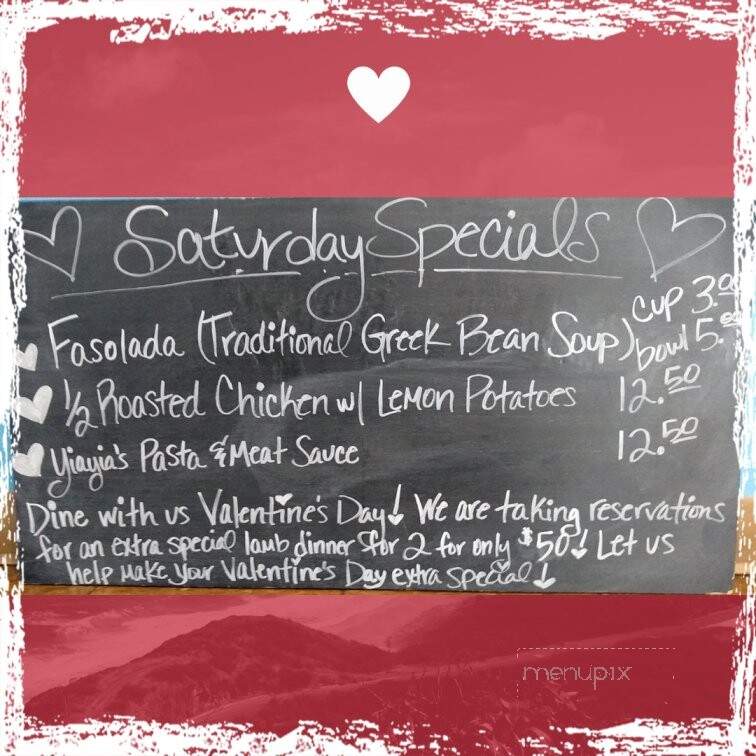 Saturday Specials
Fasolada (Traditional Greek Bean Soup) cup 3.00
bowl 5.00
1/2 Roasted Chicken w/ Lemon Potatoes 12.50
Yiayia's Pasta & Meat Sauce 12.50
Dine with us Valentine's Day! We are taking reservations
for an extra special lamb dinner for 2 for only $50! Let us
help make your Valentine's Day extra special!
menupix